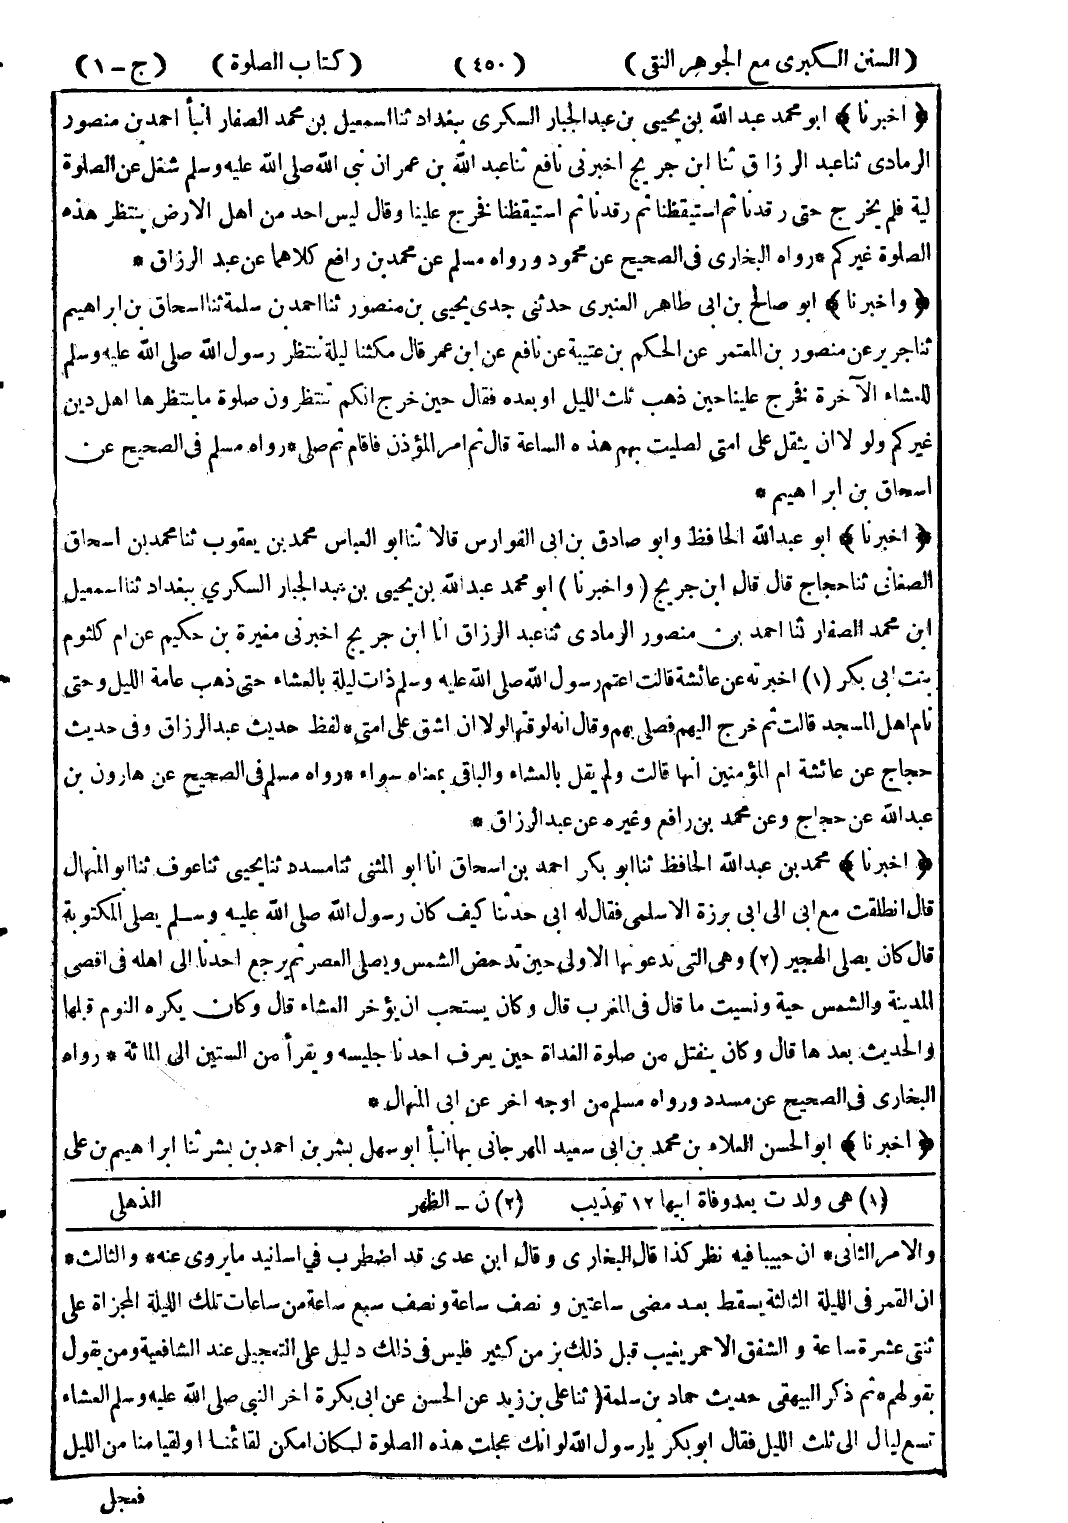 (السنن الكبرى مع الجوهر النقى) (٤٥٠) (كتاب الصلوة) (ج - ١)
﴿اخبرنا﴾ ابو محمد عبد الله بن يحيى بن عبدالجبار السكرى ببغداد ثنا اسمعيل بن محمد الصفار انبأ احمد بن منصور
الرمادى ثنا عبد الرزاق ثنا ابن جريج اخبرنى نافع ثنا عبد الله بن عمر ان نبى الله صلى الله عليه وسلم شغل عن الصلوة
لية فلم يخرج حتى رقدنا ثم استيقظنا ثم رقدنا ثم استيقظنا فخرج علينا وقال ليس احد من اهل الارض ينتظر هذه
الصلوة غيركم * رواه البخارى فى الصحيح عن محمود ورواه مسلم عن محمد بن رافع كلاهما عن عبد الرزاق *
﴿واخبرنا﴾ ابو صالح بن ابى طاهر العنبرى حدثنى جدى يحيى بن منصور ثنا احمد بن سلمة ثنا اسحاق بن ابراهيم
ثنا جرير عن منصور بن المعتمر عن الحكم بن عتيبة عن نافع عن ابن عمر قال مكثنا ليلة ننتظر رسول الله صلى الله عليه وسلم
للعشاء الآخرة فخرج علينا حين ذهب ثلث الليل او بعده فقال حين خرج انكم تنتظرون صلوة ما ينتظرها اهل دين
غيركم ولولا ان يثقل على امتى لصليت بهم هذه الساعة قال ثم امر المؤذن فاقام ثم صلى * رواه مسلم فى الصحيح عن
اسحاق بن ابراهيم *
﴿اخبرنا﴾ ابو عبدالله الحافظ وابو صادق بن ابى الفوارس قالا ثنا ابو العباس محمد بن يعقوب ثنا محمد بن اسحاق
الصغانى ثنا حجاج قال قال ابن جريج (واخبرنا) ابو محمد عبدالله بن يحيى بن عبدالجبار السكري ببغداد ثنا اسمعيل
ابن محمد الصفار ثنا احمد بن منصور الرمادى ثنا عبد الرزاق انا ابن جريج اخبرنى مغيرة بن حكيم عن ام كلثوم
بنت ابى بكر (١) اخبرته عن عائشة قالت اعتم رسول الله صلى الله عليه وسلم ذات ليلة بالعشاء حتى ذهب عامة الليل وحتى
نام اهل المسجد قالت ثم خرج اليهم فصلى بهم وقال انه لوقتها لولا ان اشق على امتى * لفظ حديث عبدالرزاق وفى حديث
حجاج عن عائشة ام المؤمنين انها قالت ولم يقل بالعشاء والباقى بمعناه سواء * رواه مسلم فى الصحيح عن هارون بن
عبدالله عن حجاج وعن محمد بن رافع وغيره عن عبدالرزاق *
﴿اخبرنا﴾ محمد بن عبدالله الحافظ ثنا ابو بكر احمد بن اسحاق انا ابو المثنى ثنا مسدد ثنا يحيى ثنا عوف ثنا ابو المنهال
قال انطلقت مع ابى الى ابى برزة الاسلمى فقال له ابى حدثنا كيف كان رسول الله صلى الله عليه وسلم يصلى المكتوبة
قال كان يصلى الهجير (٢) وهى التى تدعونها الاولى حين تدحض الشمس ويصلى العصر ثم يرجع احدنا الى اهله فى اقصى
المدينة والشمس حية ونسيت ما قال فى المغرب قال وكان يستحب ان يؤخر العشاء قال وكان يكره النوم قبلها
والحديث بعدها قال وكان ينفتل من صلوة الغداة حين يعرف احدنا جليسه ويقرأ من الستين الى المائة * رواه
البخارى فى الصحيح عن مسدد ورواه مسلم من اوجه اخر عن ابى المنهال *
﴿اخبرنا﴾ ابو الحسن العلاء بن محمد بن ابى سعيد المهرجانى بها انبأ ابو سهل بشر بن احمد بن بشر ثنا ابراهيم بن على
(١) هى ولدت بعد وفاة ابيها ١٢ تهذيب (٢) ن - الظهر الذهلى
والامر الثانى * ان حبيبا فيه نظر كذا قال البخارى وقال ابن عدى قد اضطرب في اسانيد ما يروى عنه * والثالث *
ان القمر فى الليلة الثالثة يسقط بعد مضى ساعتين ونصف ساعة ونصف سبع ساعة من ساعات تلك الليلة المجزاة على
ثنتى عشرة ساعة والشفق الاحمر يغيب قبل ذلك بزمن كثير فليس فى ذلك دليل على التعجيل عند الشافعية ومن يقول
بقولهم * ثم ذكر البيهقى حديث حماد بن سلمة (ثنا على بن زيد عن الحسن عن ابى بكرة اخر النبى صلى الله عليه وسلم العشاء
تسع ليال الى ثلث الليل فقال ابو بكر يا رسول الله لو انك عجلت هذه الصلوة لكان امكن لقائمنا او لقيامنا من الليل
فعجل